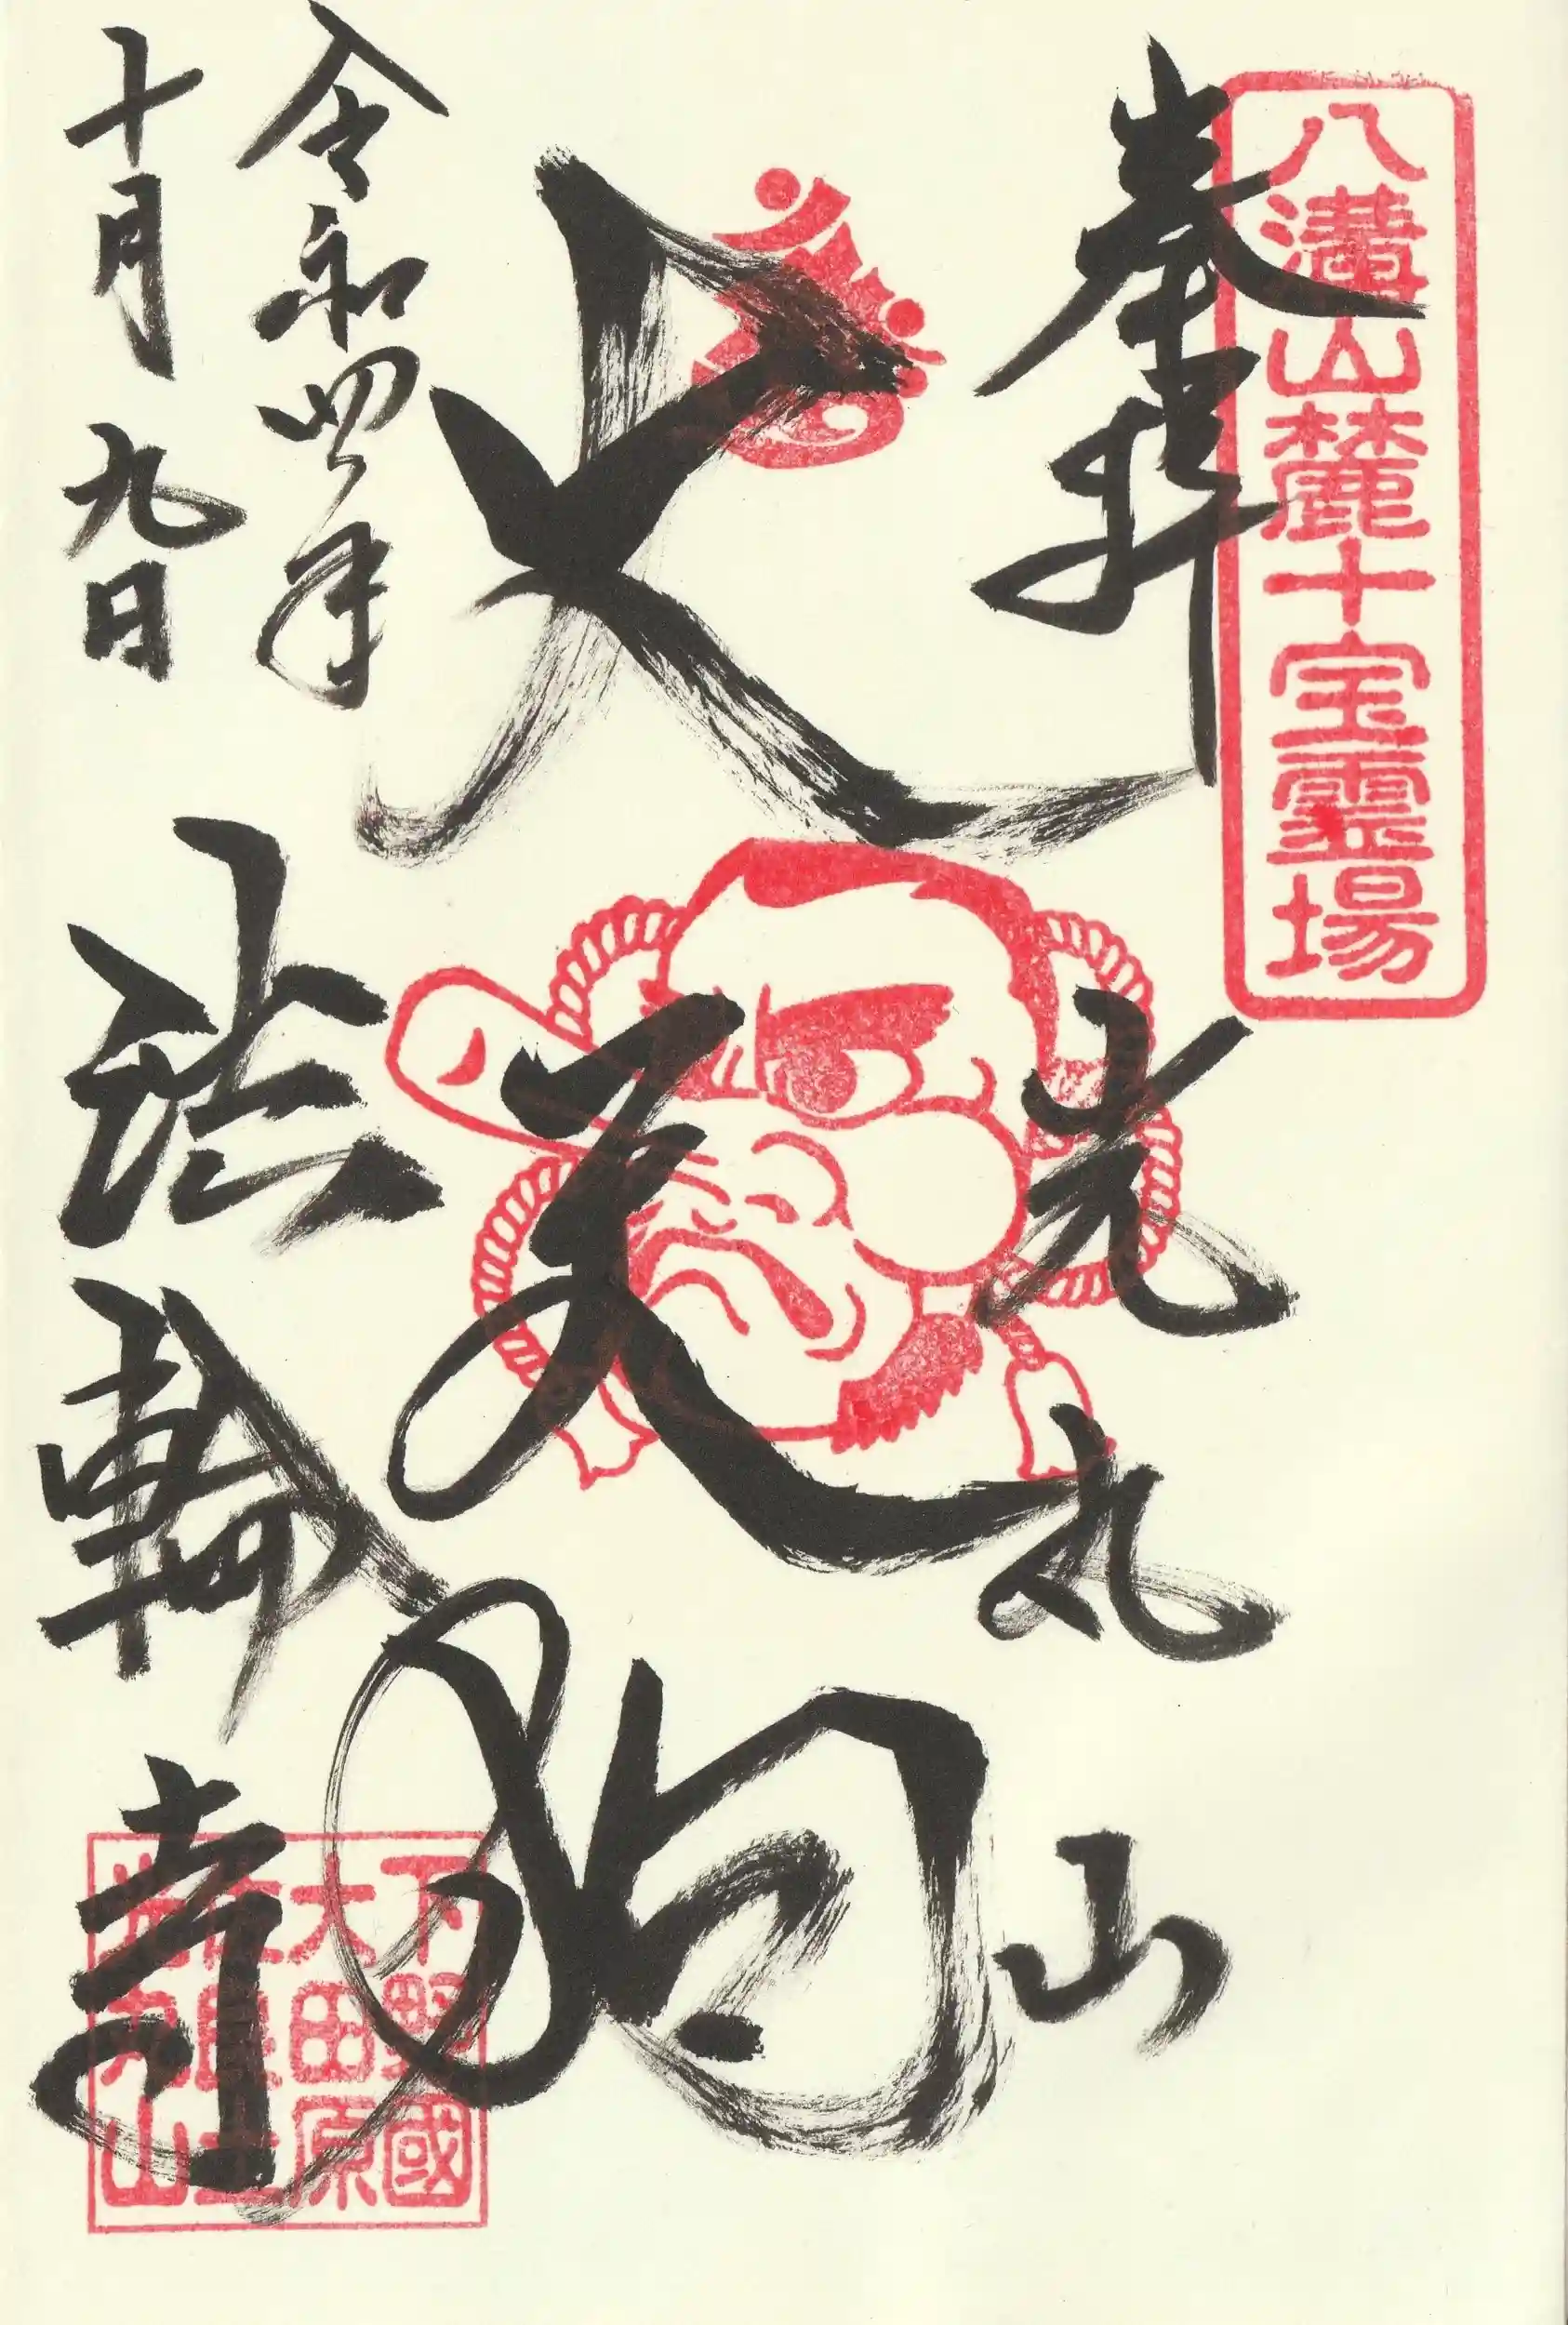 八溝山麓十宝霊場
奉拝
光丸山
大天狗
令和四年
十月九日
法輪寺
下野國
大田原
佐良土
光丸山